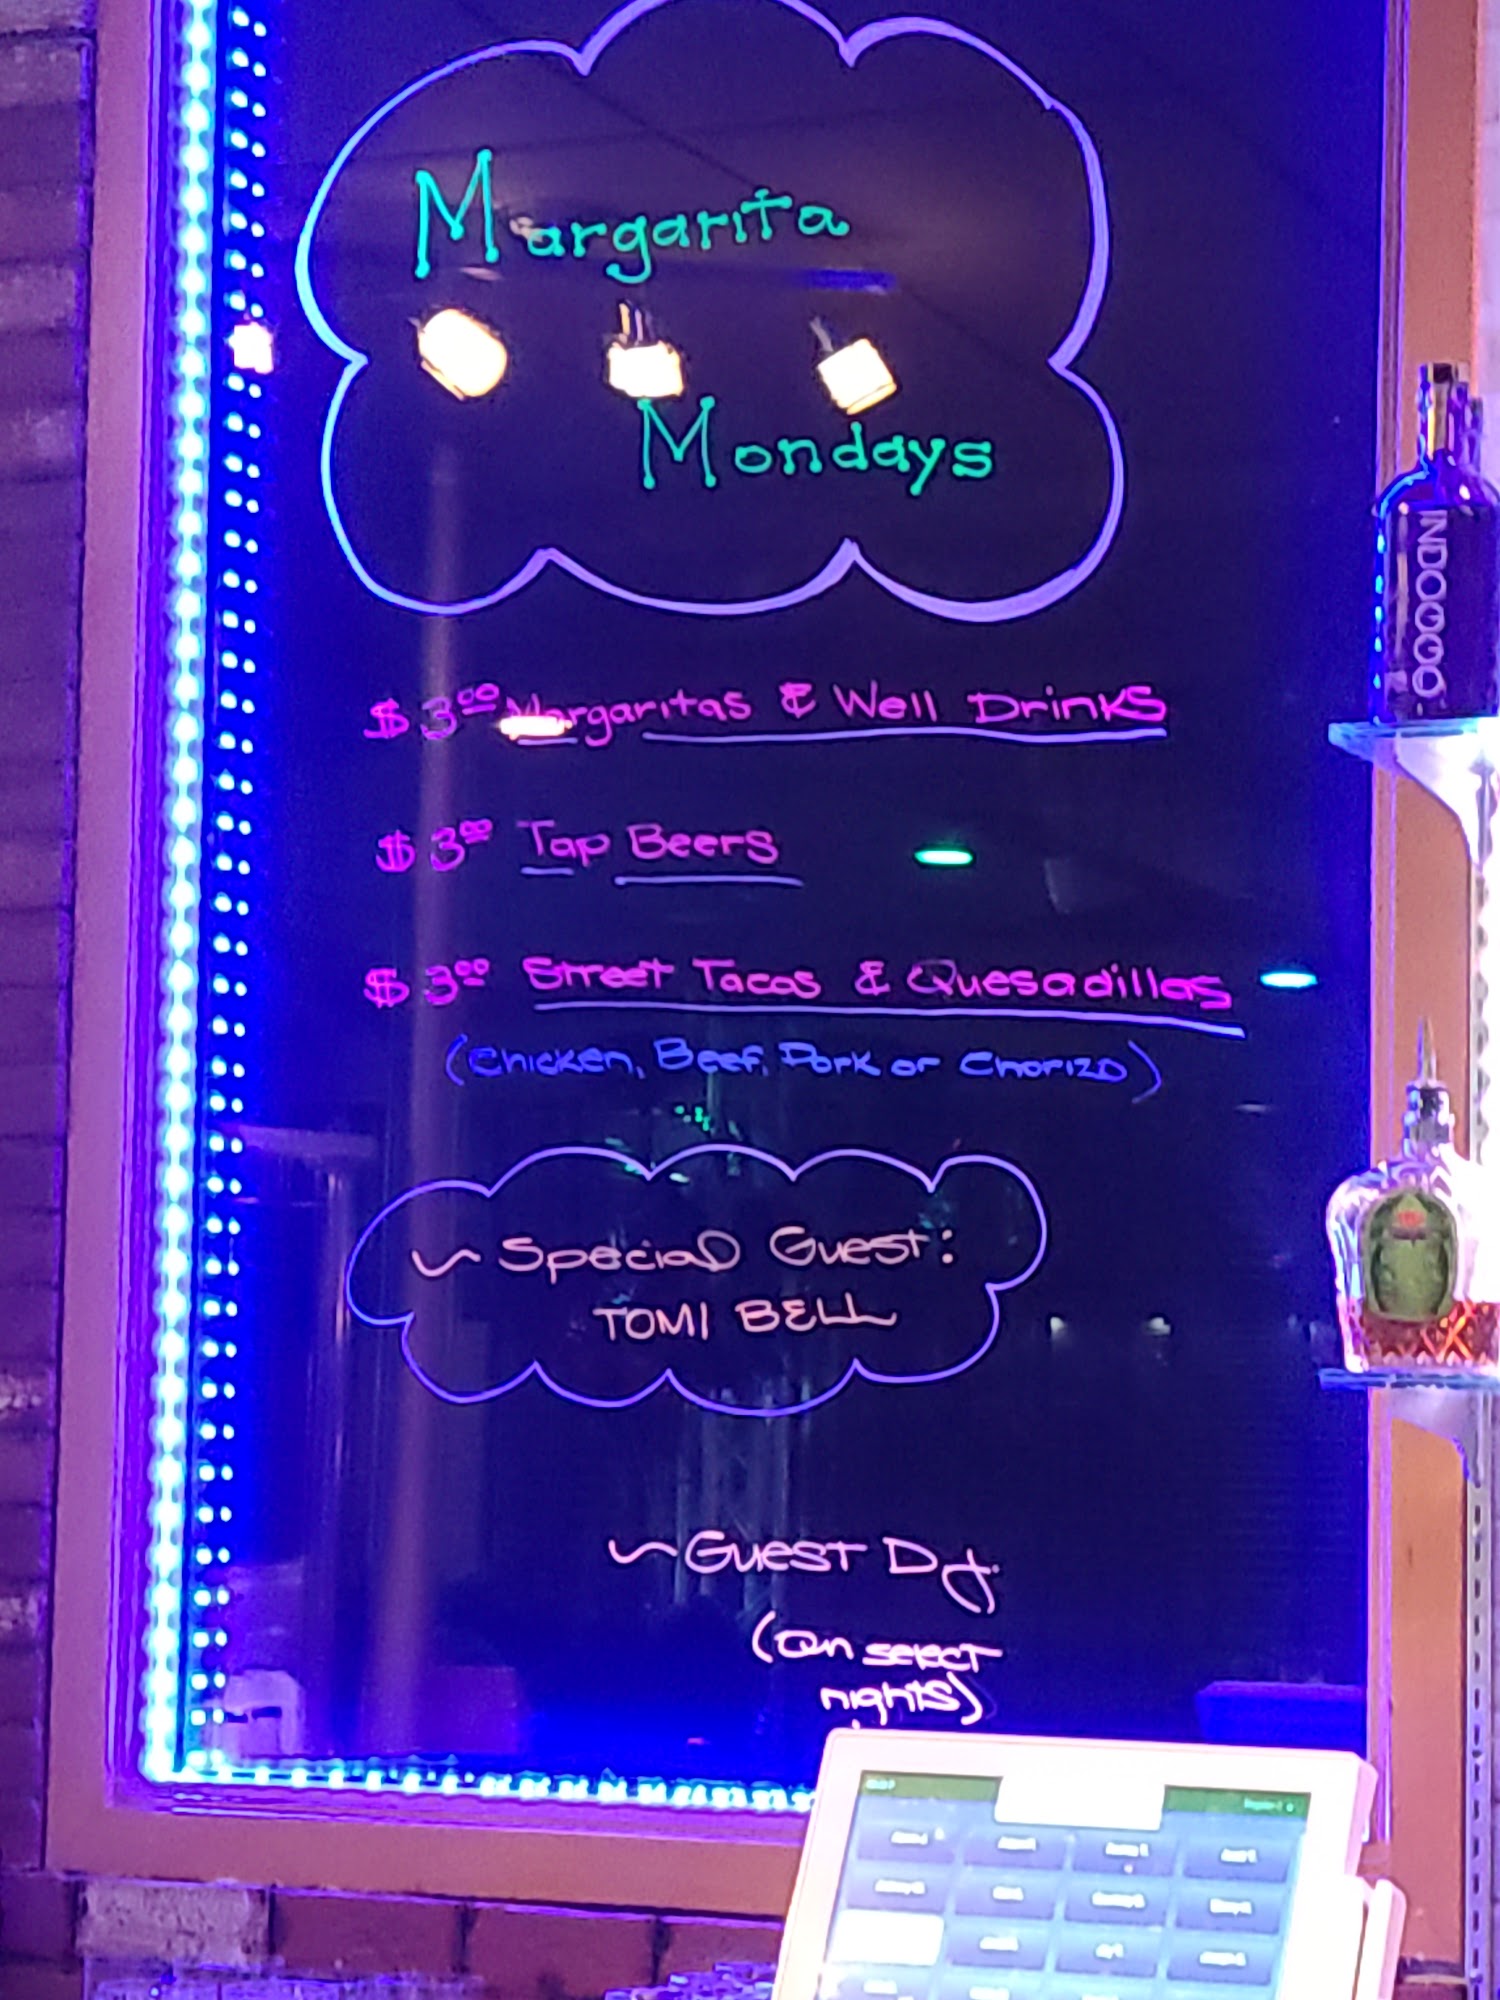 Margarita
Mondays
$3.00 Margaritas & Well Drinks
$3.00 Tap Beers
$3.00 Street Tacos & Quesadillas
(Chicken, Beef, Pork or Chorizo)
~ Special Guest:
TOMI BELL
~ Guest DJ.
(on select
nights)
INDOGGO